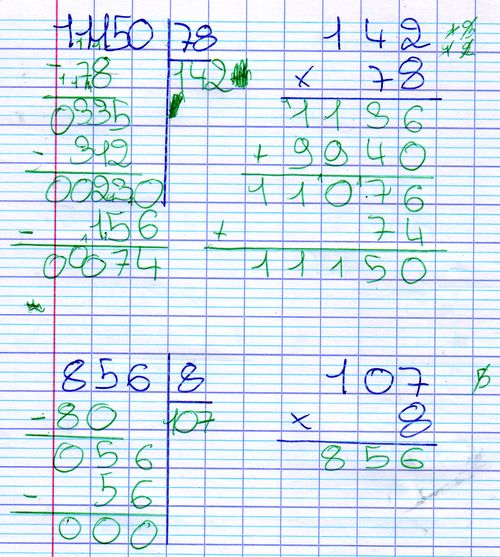 11150 78 142
- 78 142 x 78
0335 1136
- 312 + 9940
00230 11076
- 156 + 74
00074 11150
856 8 107
- 80 107 x 8
056 856
- 56
000